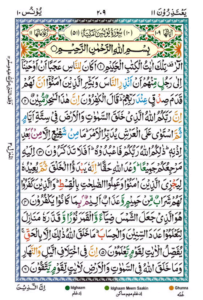 يَعْتَذِرُوْنَ ١١
٢٠٩
يُوْنُس ١٠
(١٠) سُوْرَةُ يُوْنُسَ مَكِّيَّةٌ (٥١)
بِسْمِ اللّٰهِ الرَّحْمٰنِ الرَّحِيْمِ
الٓرٰ تِلْكَ اٰيٰتُ الْكِتٰبِ الْحَكِيْمِ اَكَانَ لِلنَّاسِ عَجَبًا اَنْ اَوْحَيْنَاۤ
اِلٰى رَجُلٍ مِّنْهُمْ اَنْ اَنْذِرِ النَّاسَ وَبَشِّرِ الَّذِيْنَ اٰمَنُوْۤا اَنَّ لَهُمْ
قَدَمَ صِدْقٍ عِنْدَ رَبِّهِمْ قَالَ الْكٰفِرُوْنَ اِنَّ هٰذَا لَسٰحِرٌ مُّبِيْنٌ
اِنَّ رَبَّكُمُ اللّٰهُ الَّذِيْ خَلَقَ السَّمٰوٰتِ وَالْاَرْضَ فِيْ سِتَّةِ اَيَّامٍ
ثُمَّ اسْتَوٰى عَلَى الْعَرْشِ يُدَبِّرُ الْاَمْرَ مَا مِنْ شَفِيْعٍ اِلَّا مِنْۢ بَعْدِ
اِذْنِهٖ ذٰلِكُمُ اللّٰهُ رَبُّكُمْ فَاعْبُدُوْهُ اَفَلَا تَذَكَّرُوْنَ اِلَيْهِ
مَرْجِعُكُمْ جَمِيْعًا وَعْدَ اللّٰهِ حَقًّا اِنَّهٗ يَبْدَؤُا الْخَلْقَ ثُمَّ يُعِيْدُهٗ
لِيَجْزِيَ الَّذِيْنَ اٰمَنُوْا وَعَمِلُوا الصّٰلِحٰتِ بِالْقِسْطِ وَالَّذِيْنَ كَفَرُوْا
لَهُمْ شَرَابٌ مِّنْ حَمِيْمٍ وَّعَذَابٌ اَلِيْمٌۢ بِمَا كَانُوْا يَكْفُرُوْنَ
هُوَ الَّذِيْ جَعَلَ الشَّمْسَ ضِيَآءً وَّالْقَمَرَ نُوْرًا وَّقَدَّرَهٗ مَنَازِلَ
لِتَعْلَمُوْا عَدَدَ السِّنِيْنَ وَالْحِسَابَ مَا خَلَقَ اللّٰهُ ذٰلِكَ اِلَّا بِالْحَقِّ
يُفَصِّلُ الْاٰيٰتِ لِقَوْمٍ يَّعْلَمُوْنَ اِنَّ فِي اخْتِلَافِ الَّيْلِ وَالنَّهَارِ
وَمَا خَلَقَ اللّٰهُ فِي السَّمٰوٰتِ وَالْاَرْضِ لَاٰيٰتٍ لِّقَوْمٍ يَّتَّقُوْنَ
اِنَّ الَّذِيْنَ
Idghaam
Idghaam Meem Saakin
Ghunna